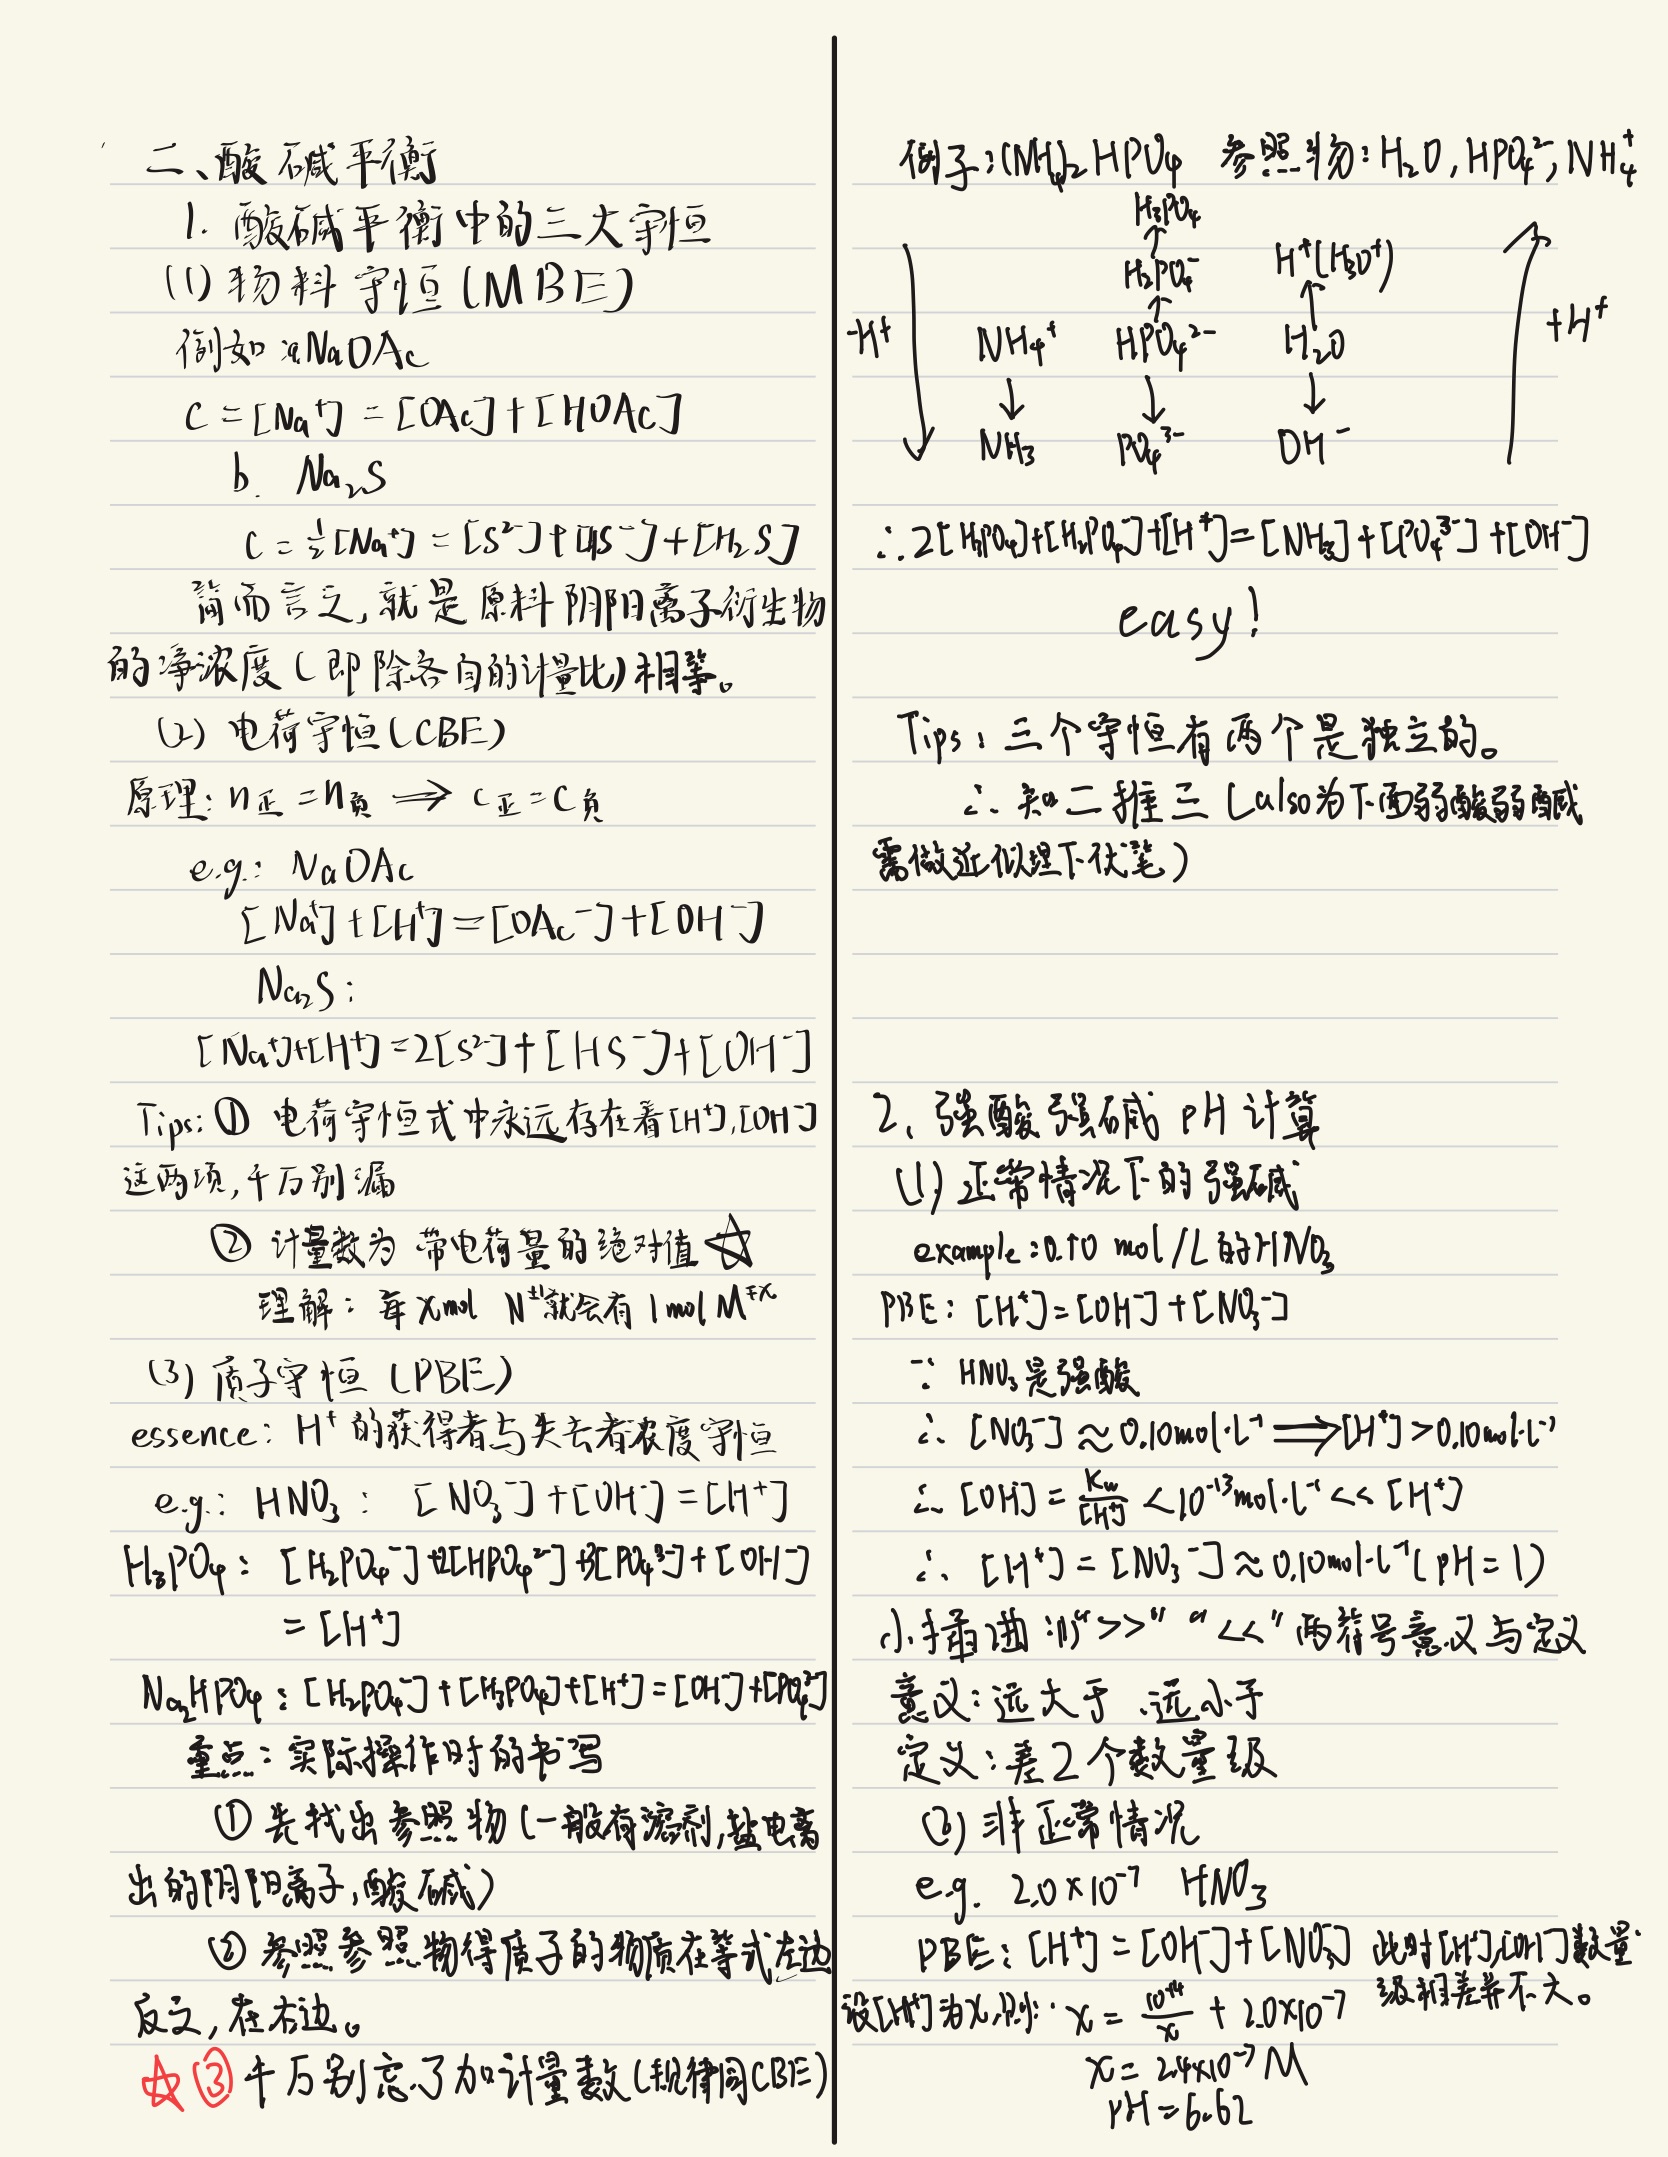 二、酸碱平衡
1. 酸碱平衡中的三大守恒
(1) 物料守恒(MBE)
例如:a NaOAc
C = [Na⁺] = [OAc] + [HOAc]
b. Na₂S
C = ½[Na⁺] = [S²⁻] + [HS⁻] + [H₂S]
简而言之,就是原料阴阳离子衍生物
的净浓度(即除各自的计量比)相等。
(2) 电荷守恒(CBE)
原理: n正 = n负 ⟹ c正 = c负
e.g.: NaOAc
[Na⁺] + [H⁺] = [OAc⁻] + [OH⁻]
Na₂S:
[Na⁺]+[H⁺] = 2[S²⁻] + [HS⁻] + [OH⁻]
Tips: ① 电荷守恒式中永远存在着[H⁺],[OH⁻]
这两项,千万别漏
② 计量数为带电荷量的绝对值 ☆
理解: 每 x mol N^±1 就会有 1 mol M^∓x
(3) 质子守恒 (PBE)
essence: H⁺的获得者与失去者浓度守恒
e.g.: HNO₃: [NO₃⁻] + [OH⁻] = [H⁺]
H₃PO₄: [H₂PO₄⁻] + 2[HPO₄²⁻] + 3[PO₄³⁻] + [OH⁻]
= [H⁺]
Na₂HPO₄: [H₂PO₄⁻] + [H₃PO₄] + [H⁺] = [OH⁻] + [PO₄³⁻]
重点: 实际操作时的书写
① 先找出参照物(一般有溶剂,盐电离
出的阴阳离子,酸碱)
② 参照参照物得质子的物质在等式左边
反之,在右边。
☆③ 千万别忘了加计量数(规律同CBE)
例子:(NH₄)₂HPO₄ 参照物:H₂O, HPO₄²⁻, NH₄⁺
H₃PO₄
H₂PO₄⁻ H⁺(H₃O⁺)
-H⁺ NH₄⁺ HPO₄²⁻ H₂O +H⁺
NH₃ PO₄³⁻ OH⁻
∴ 2[H₃PO₄]+[H₂PO₄⁻]+[H⁺] = [NH₃] + [PO₄³⁻] + [OH⁻]
easy!
Tips: 三个守恒有两个是独立的。
∴ 知二推三 (also为下面弱酸弱碱
需做近似埋下伏笔)
2、强酸强碱 pH 计算
(1) 正常情况下的强碱
example: 0.10 mol/L 的HNO₃
PBE: [H⁺] = [OH⁻] + [NO₃⁻]
∵ HNO₃是强酸
∴ [NO₃⁻] ≈ 0.10mol·L⁻¹ ⟹ [H⁺] > 0.10mol·L⁻¹
∴ [OH] = Kw/[H⁺] < 10⁻¹³mol·L⁻¹ << [H⁺]
∴ [H⁺] = [NO₃⁻] ≈ 0.10mol·L⁻¹ (pH = 1)
小插曲:“>>” “<<” 两符号意义与定义
意义: 远大于 .远小于
定义: 差2个数量级
(2) 非正常情况
e.g. 2.0×10⁻⁷ HNO₃
PBE: [H⁺] = [OH⁻] + [NO₃⁻] 此时[H⁺],[OH⁻]数量
级相差并不大。
设[H⁺]为x,则: x = 10⁻¹⁴/x + 2.0×10⁻⁷
x = 2.4×10⁻⁷ M
pH = 6.62